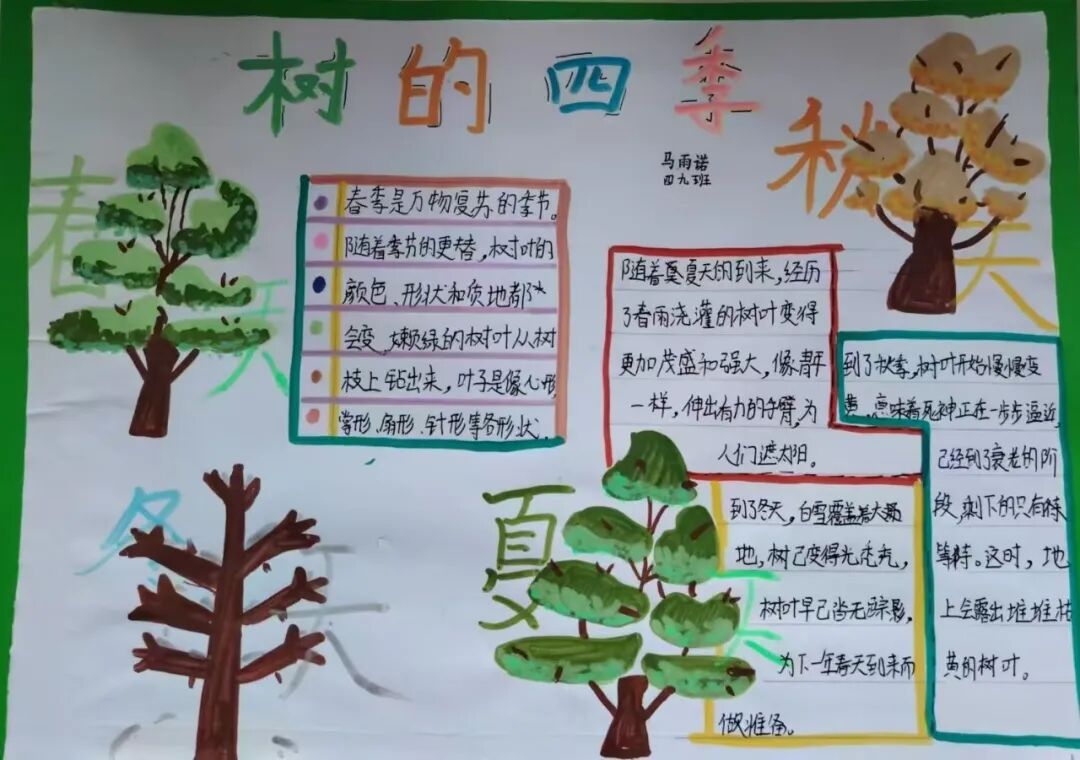 树的四季
马雨诺
四九班
春天
春季是万物复苏的季节。
随着季节的更替，树叶的
颜色、形状和质地都
会变，嫩绿的树叶从树
枝上钻出来，叶子是像心形
掌形、扇形、针形等各形状。
秋天
随着夏天的到来，经历
了春雨浇灌的树叶变得
更加茂盛和强大，像青年
一样，伸出有力的手臂，为
人们遮太阳。
到了秋季，树叶开始慢慢变
黄，意味着死神正在一步步逼近，
已经到了衰老的阶
段，剩下的只有
等待。这时，地
上会露出堆堆枯
黄的树叶。
冬天
夏天
到了冬天，白雪覆盖着大
地，树已变得光秃秃，
树叶早已当无踪影，
为下一年春天到来而
做准备。